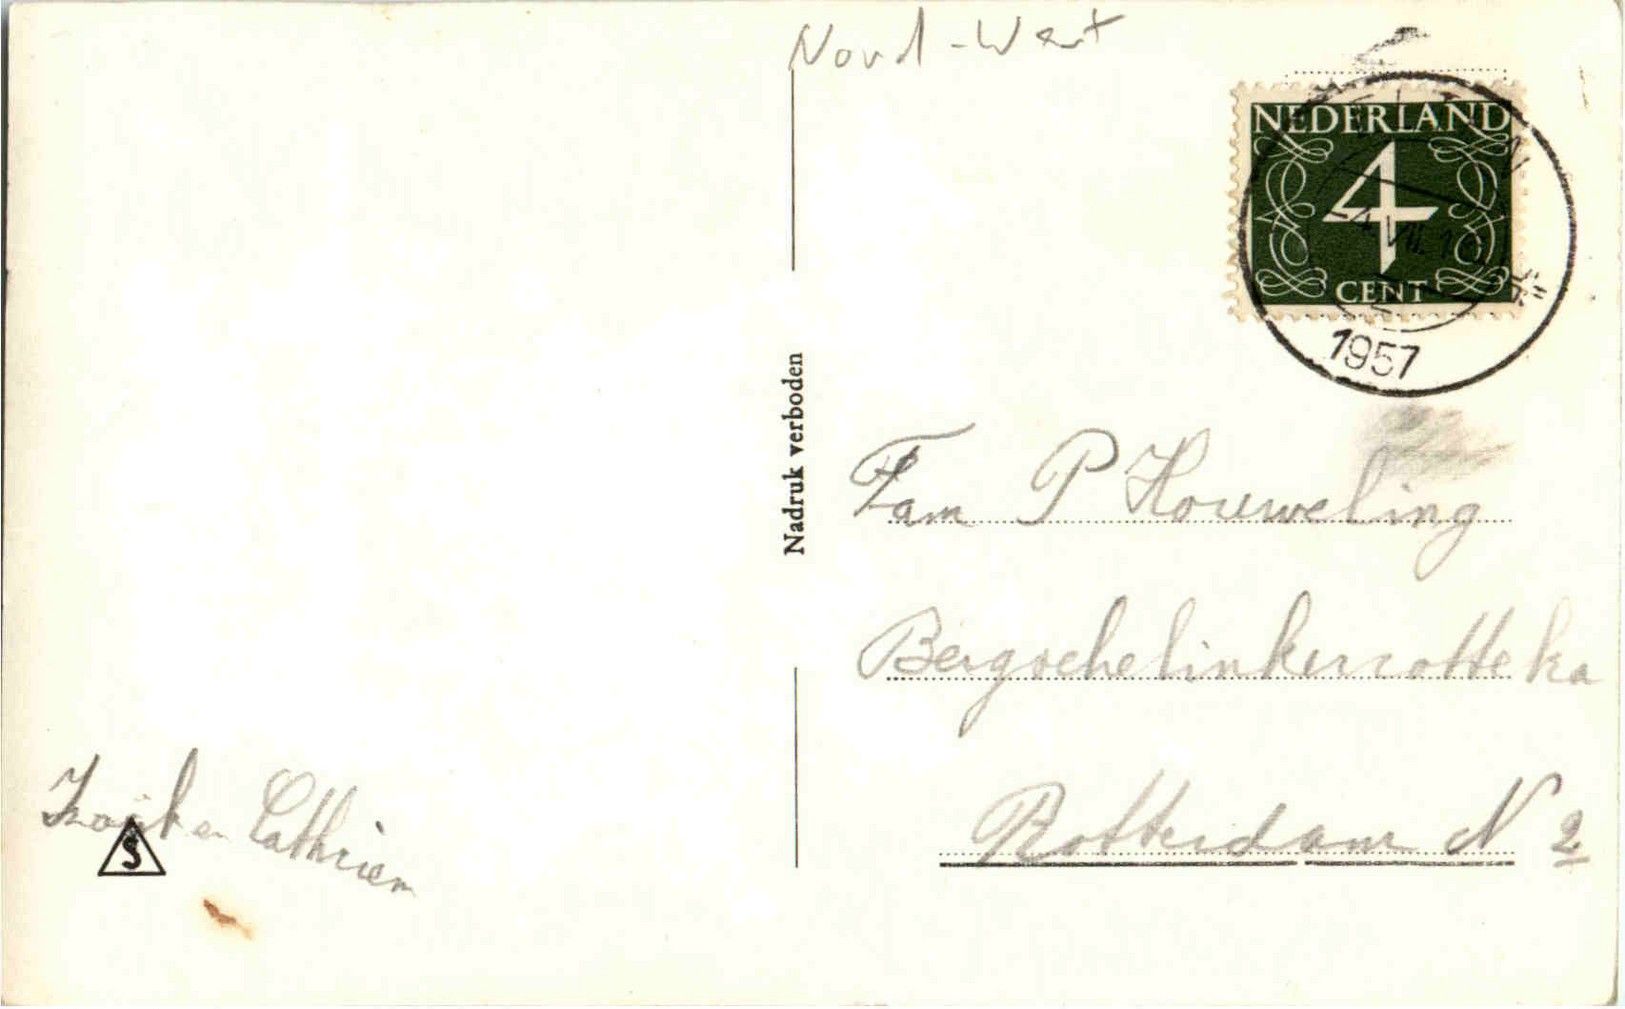 Nord-West
NEDERLAND
4
CENT
4.VII.
1957
Nadruk verboden
Fam P Houweling
Bergschelinkerrotteka
Rotterdam N 2
en Cathrien
S